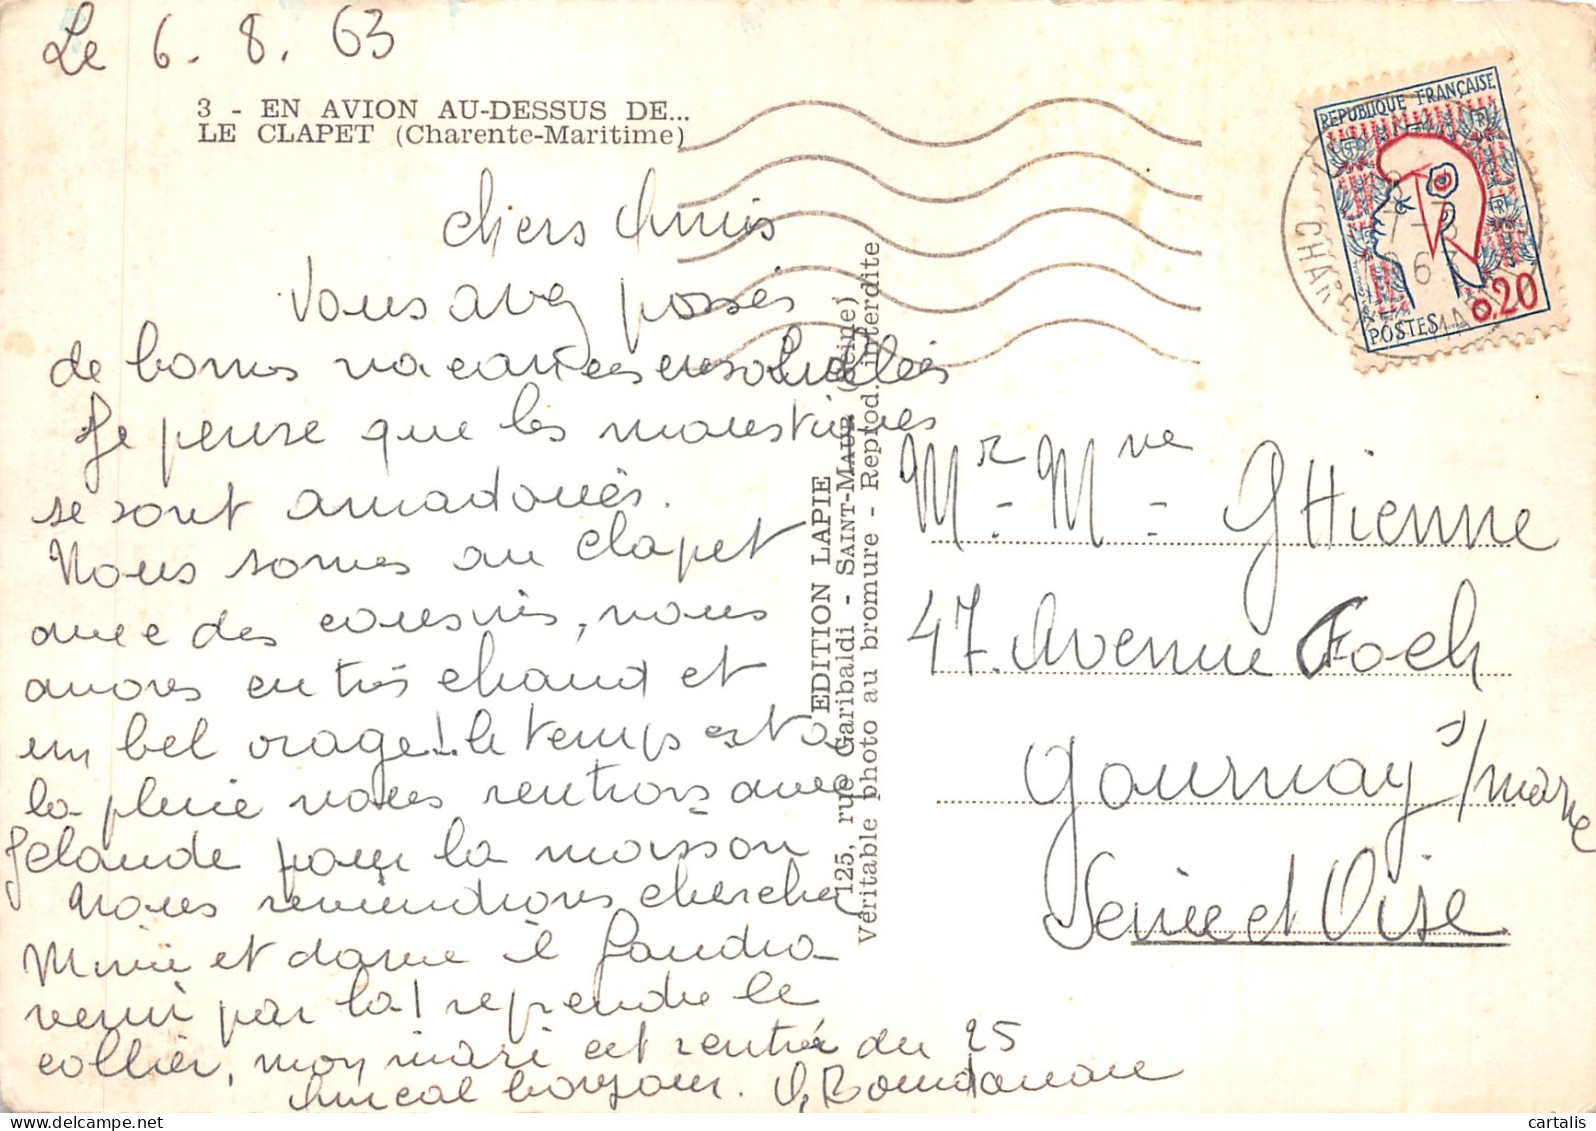 Le 6. 8. 63
3 - EN AVION AU-DESSUS DE...
LE CLAPET (Charente-Maritime)
Chers Amis
Vous avez possés
de bonnes vacances ensoleillées
Je pense que les moustiques
se sont amadoués.
Nous somes au clapet
avec des cousins, nous
avons eu très chaud et
un bel orage! le temps est à
la pluie nous rentrons avec
Jelande pour la maison
Nous reviendrons chercher
Mimi et dame il faudra
venir par la! reprendre le
collier, mon mari est rentré du 25
Amical bonjour.
EDITION LAPIE
125, rue Garibaldi - SAINT-MAUR (Seine)
Véritable photo au bromure - Reprod. interdite
REPUBLIQUE FRANÇAISE
POSTES
0,20
Mr - Mme - GHienne
47. Avenue Foch
Gournay s/marne
Seine et Oise
cartalis